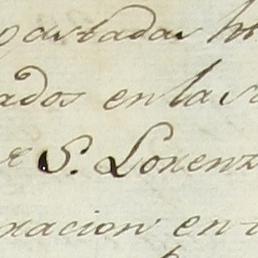 pastadas
ados en la
S. Lorenz
racion en